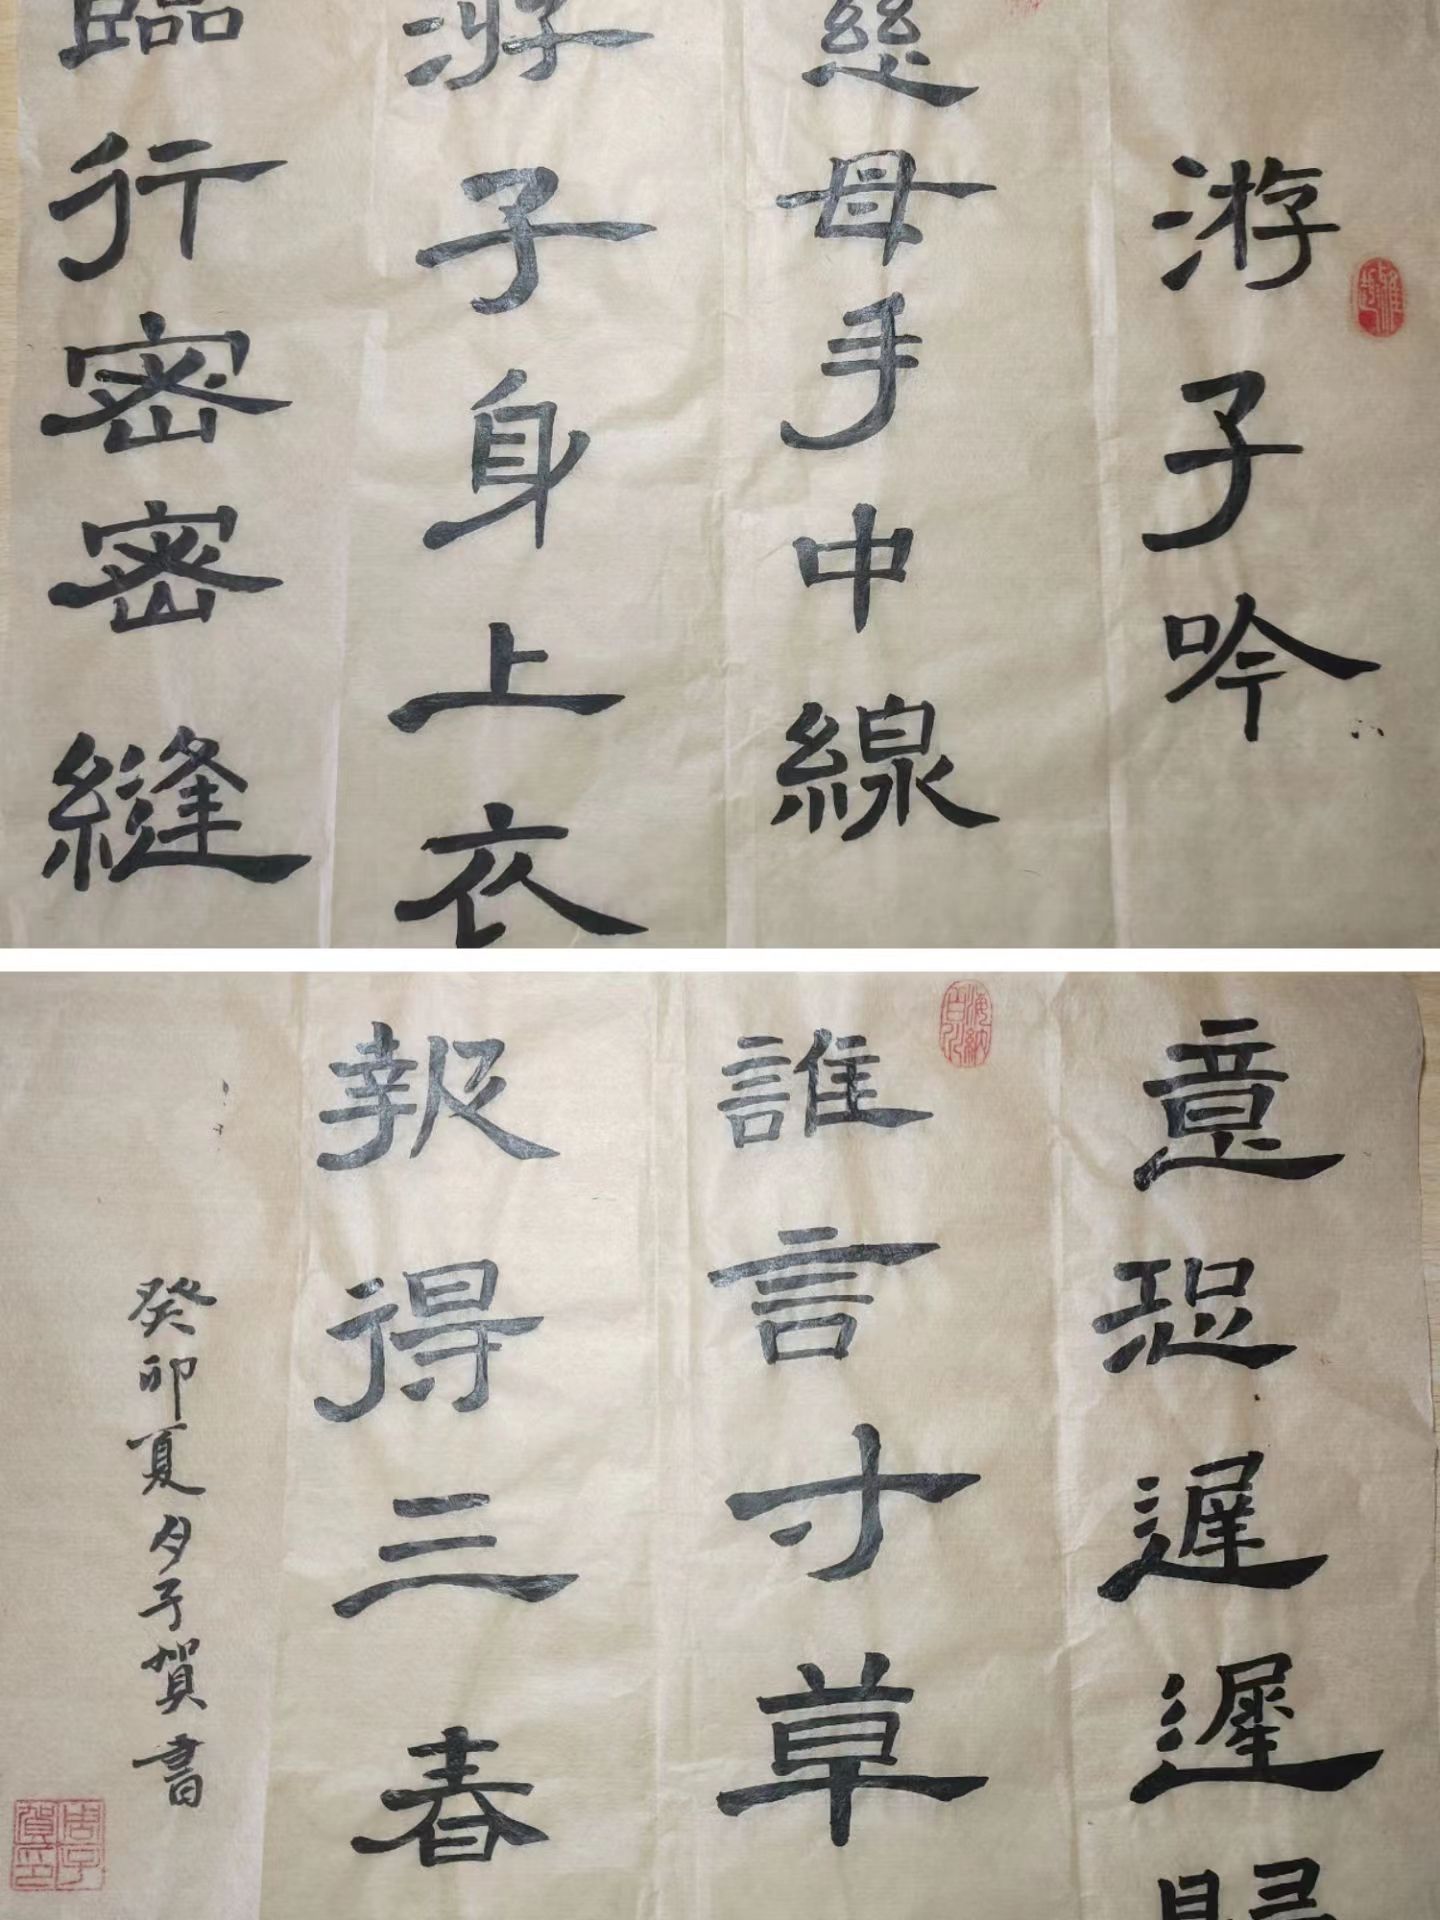 游子吟
慈母手中線
游子身上衣
臨行密密縫
意恐遲遲歸
誰言寸草
報得三春
癸卯夏夕子賀書
海納百川
周子賀印